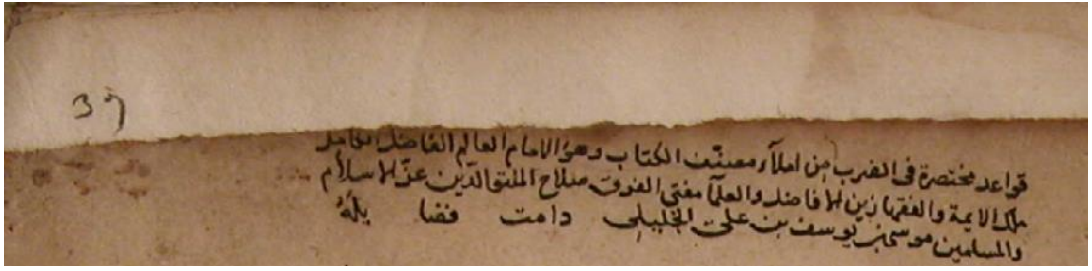 39
قواعد مختصرة فى الضرب من املآء مصنّف الكتاب وهو الامام العالم الفاضل الكامل
ملك الايمة والفقها زين الافاضل والعلمآ مفتى الفرق صلاح الملة والدين عزّ الاسلام
والمسلمين موسى بن يوسف بن على الخليلى دامت فضايله